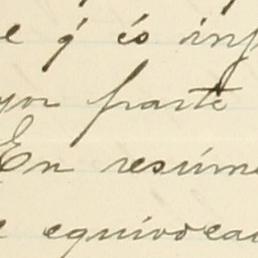 e q́ és inf
yor parte
En resúme
e equivoca